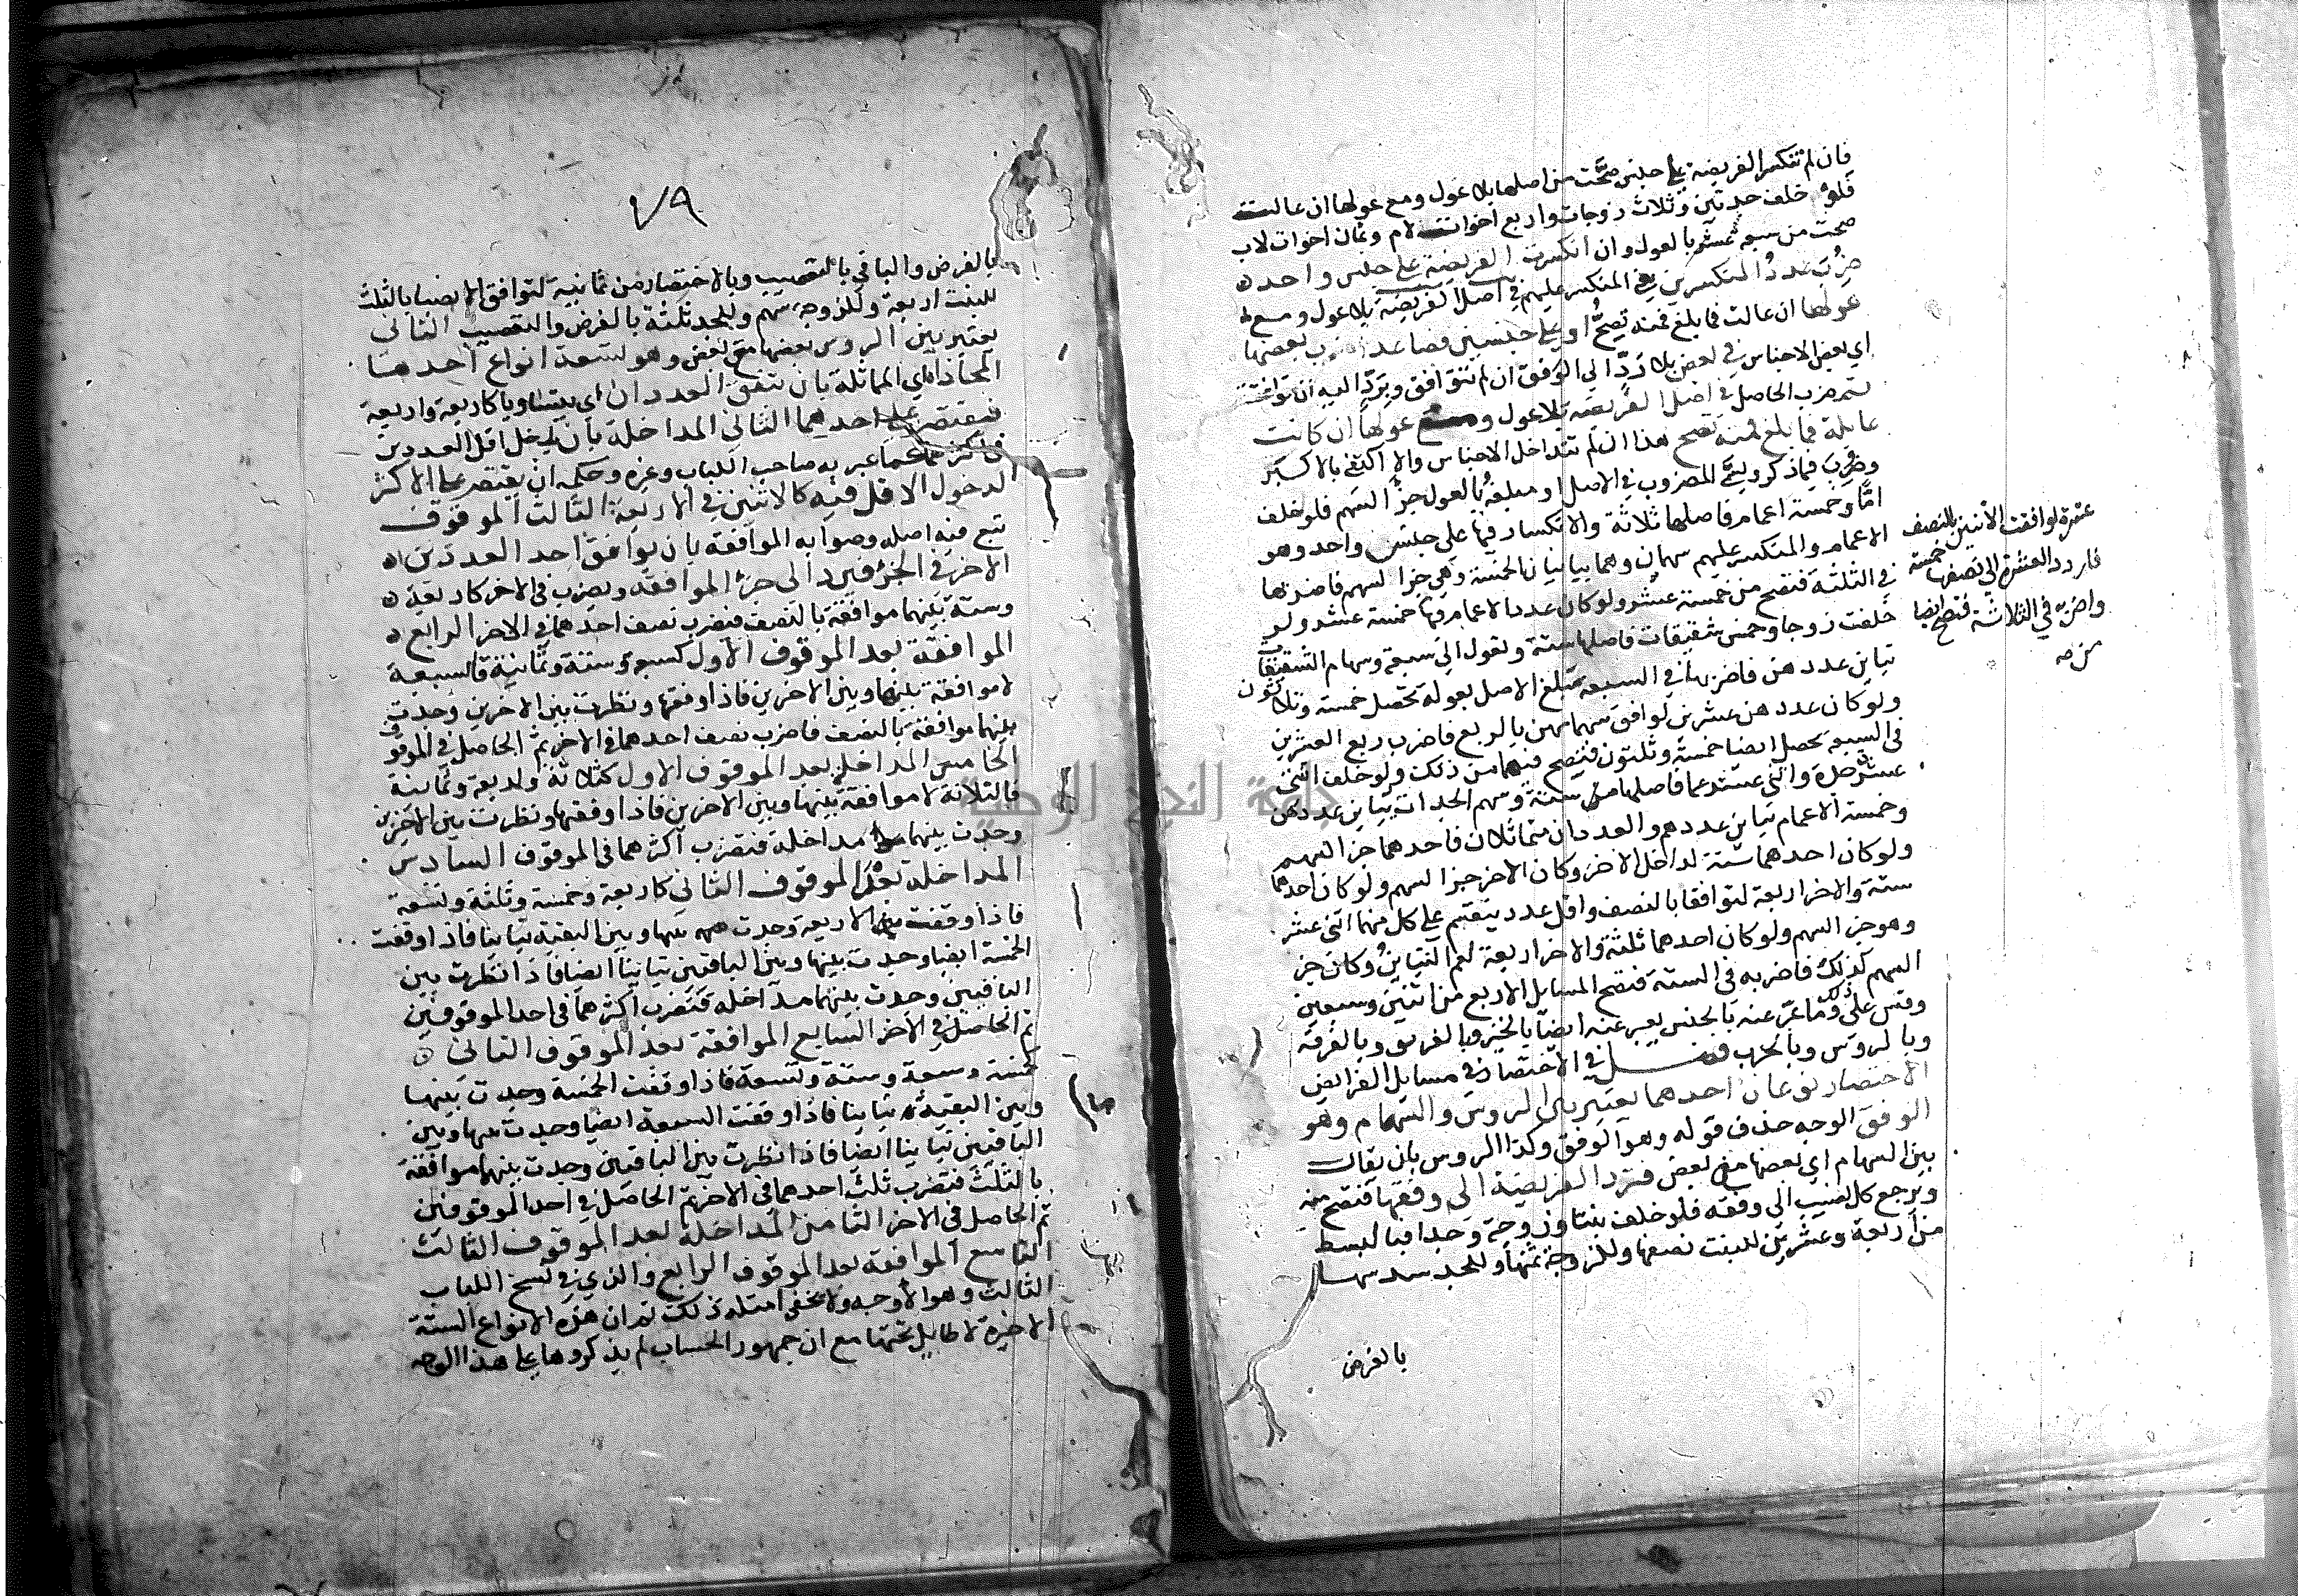 فان لم تنكسر الفريضة على جنس صحّت من اصلها بلا عول ومع عولها ان عالت
فلو خلف جدتين وثلاث زوجات واربع اخوات لام وثمان اخوات لاب
صحت من سبعة عشر بالعول وان انكسرت الفريضة على جنس واحد
ضُرب عددُ المنكسرين المنكسر عليهم في اصل الفريضة بلا عول ومع
عولها ان عالت فما بلغ فمنه تصحُّ او على جنسين فصاعدا ضرب بعضها
اي بعض الاجناس في بعض بلا ردّ الى الوفق ان لم تتوافق وبردّ اليه ان توافقت
ثم ضرب الحاصل في اصل الفريضة بلا عول ومع عولها ان كانت
عايلة فما بلغ فمنه تصح هذا ان لم تتداخل الاجناس والا اكتفي بالاكبر
وضُرِبَ فيما ذكر ويسمّى المضروب في الاصل او مبلغه بالعول جزْأ السهم فلو خلف
امًّا وخمسة اعمام فاصلها ثلاثة والانكسار فيها على جنس واحد وهو
الاعمام والمنكسر عليهم سهمان وهما يباينان الخمسة وهي جزا السهم فاضربها
في الثلثة فتصح من خمسة عشر ولو كان عدد الاعمام فيها خمسة عشر ولو
عشرة لوافقت الاثنين بالنصف
فاردد العشرة الى نصفها خمسة
واضربه في الثلاثة فتصح ايضا
من صه
خلفت زوجا وخمس شقيقات فاصلها ستة وتعول الى سبعة وسهام الشقيقات
تباين عددهن فاضربها في السبعة مبلغ الاصل بعوله تحصل خمسة وثلاثون
ولو كان عددهن عشرين لوافق سهامهن بالربع فاضرب ربع العشرين
في السبعة يحصل ايضا خمسة وثلثون فتصح فيهما من ذلك ولو خلف اثنتي
عشرة جدة واثني عشر عما فاصلها من ستة وسهم الجدات يباين عددهن
وخمسة الاعمام تباين عددهم والعددان متماثلان فاحدهما جزا السهم
ولو كان احدهما ستة لداخل الاخر وكان الاخر جزا السهم ولو كان احدهما
ستة والاخر اربعة لتوافقا بالنصف واقل عدد ينقسم على كل منهما اثني عشر
وهو جزا السهم ولو كان احدهما ثلثة والاخر اربعة لعم التباين وكان جزا
السهم كذلك فاضربه في الستة فتصح المسايل الاربع من اثنين وسبعين
وقس على ذلك وما عبّر عنه بالجنس يعبر عنه ايضا بالحيز وبالفريق وبالفرقة
وبالروس وبالحزب فصل في الاختصار في مسايل الفرايض
الاختصار نوعان احدهما يعتبر بين الروس والسهام وهو
الوفق الوجه حذف قوله وهو الوفق وكذا الروس بان يقال
بين السهام اي بعضها مع بعض فترد الفريضة الى وفقها فتصح منه
ويرجع كل نصيب الى وفقه فلو خلف بنتا وزوجة وجدا فبالبسط
من اربعة وعشرين للبنت نصفها وللزوجة ثمنها وللجد سدسها
بالفرض
٧٩
بالفرض والباقي بالتعصيب وبالاختصار من ثمانية لتوافق الانصبا بالثلث
للبنت اربعة وللزوجة سهم وللجد ثلثة بالفرض والتعصيب الثاني
يعتبر بين الروس بعضها مع بعض وهو تسعة انواع احدها
المحاذاة اي المماثلة بان يتفق العددان اي يتساويا كاربعة واربعة
فيقتصر على احدهما الثاني المداخلة بان يدخل اقل العددين
في اكثرهما عبر به صاحب اللباب وغيره وحكمه ان يقتصر على الاكثر
لدخول الاقل فيه كالاثنين في الاربعة الثالث الموقوف
تبع فيه اصله وصوابه الموافقة بان يوافق احد العددين
الاخر في الجزْء فيرد الى جزْء الموافقة ويضرب في الاخر كاربعة
وستة بينهما موافقة بالنصف فتضرب نصف احدهما في الاخر الرابع
الموافقة بعد الموقوف الاول كسبعة وستة وثمانية فالسبعة
لا موافقة بينها وبين الاخرين فاذا وقفتها ونظرت بين الاخرين وجدت
بينهما موافقة بالنصف فاضرب نصف احدهما في الاخر ثم الحاصل في الموقوف
الخامس المداخلة بعد الموقوف الاول كثلاثة واربعة وثمانية
فالثلاثة لا موافقة بينها وبين الاخرين فاذا وقفتها ونظرت بين الاخرين
وجدت بينهما مداخلة فتضرب اكثرهما في الموقوف السادس
المداخلة بعد الموقوف الثاني كاربعة وخمسة وثلثة وتسعة
فاذا وقفت الاربعة وجدت بينها وبين البقية تباينا فاذا وقفت
الخمسة ايضا وجدت بينها وبين الباقيين تباينا ايضا فاذا نظرت بين
الباقيين وجدت بينهما مداخلة فتضرب اكثرهما في احد الموقوفين
ثم الحاصل في الاخر السابع الموافقة بعد الموقوف الثاني
كخمسة وسبعة وستة وتسعة فاذا وقفت الخمسة وجدت بينها
وبين البقية تباينا فاذا وقفت السبعة ايضا وجدت بينها وبين
الباقيين تباينا ايضا فاذا نظرت بين الباقيين وجدت بينهما موافقة
بالثلث فتضرب ثلث احدهما في الاخر ثم الحاصل في احد الموقوفين
ثم الحاصل في الاخر الثامن المداخلة بعد الموقوف الثالث
التاسع الموافقة بعد الموقوف الرابع والذي في نسخ اللباب
الثالث وهو الاوجه ولا يخفى امثلة ذلك ثم ان هذه الانواع الستة
الاخيرة لا طايل تحتها مع ان جمهور الحساب لم يذكروها على هذا الوجه
جامعة النجاح الوطنية